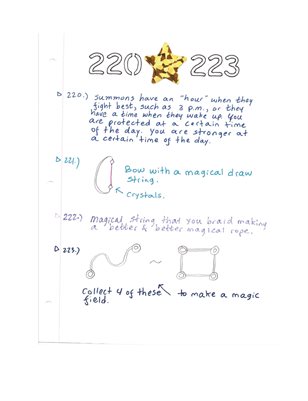 220 223
220.) Summons have an "hour" when they
fight best, such as 3 p.m., or they
have a time when they wake up. You
are protected at a certain time
of the day. You are stronger at
a certain time of the day.
221.) Bow with a magical draw
string.
crystals.
222.) Magical string that you braid making
a better & better magical rope.
223.)
Collect 4 of these to make a magic
field.